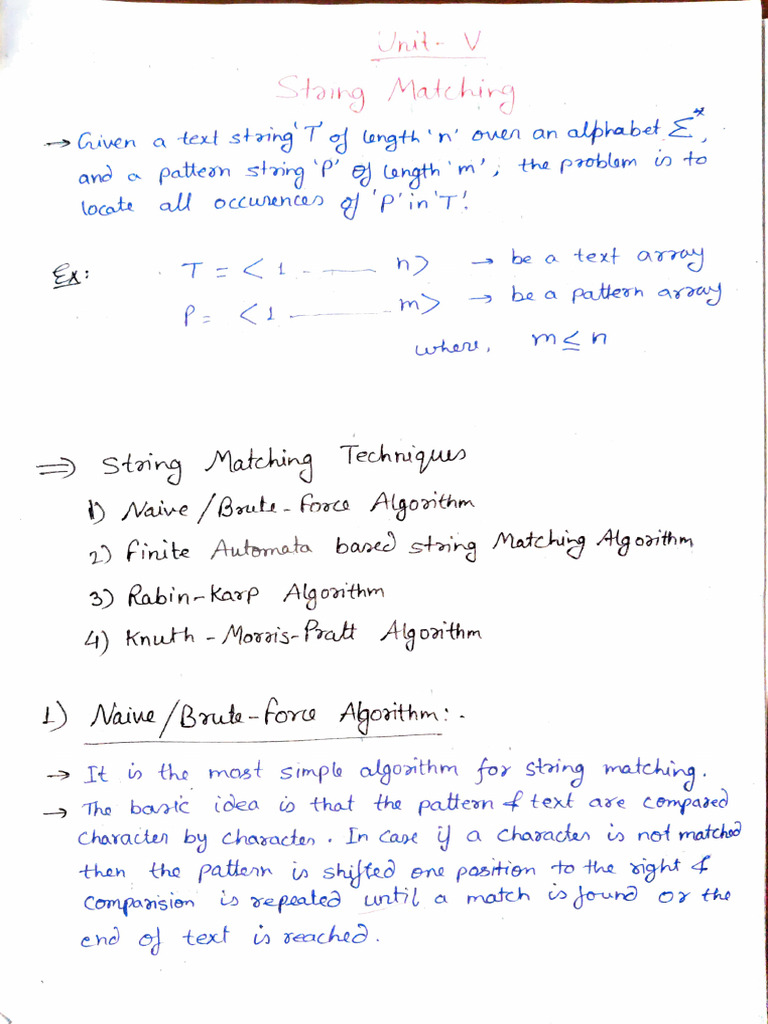 Unit - V
String Matching
→ Given a text string 'T' of length 'n' over an alphabet Σ*,
and a pattern string 'P' of length 'm', the problem is to
locate all occurences of 'P' in 'T'.
Ex: T = < 1 ------ n> → be a text array
P = < 1 ------ m> → be a pattern array
where, m ≤ n
⇒ String Matching Techniques
1) Naive / Brute-Force Algorithm
2) Finite Automata based string Matching Algorithm
3) Rabin-Karp Algorithm
4) Knuth - Morris-Pratt Algorithm
1) Naive / Brute-Force Algorithm:.
→ It is the most simple algorithm for string matching.
→ The basic idea is that the pattern & text are compared
character by character. In case if a character is not matched
then the pattern is shifted one position to the right &
comparision is repeated until a match is found or the
end of text is reached.